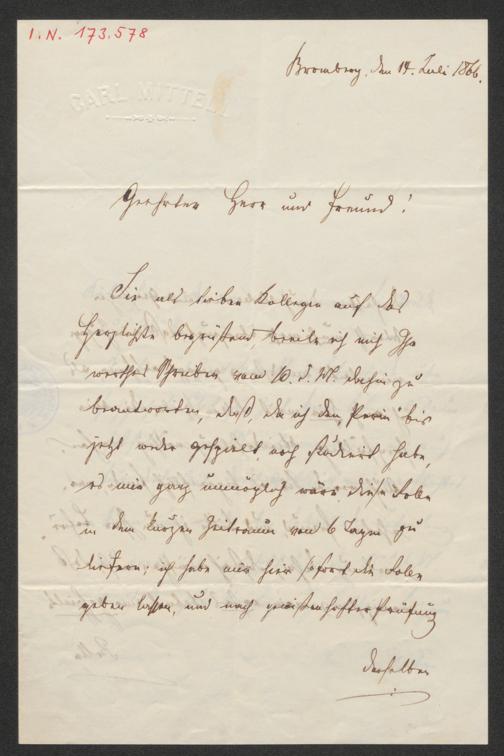 I. N. 173.578
Bromberg, den 14. Juli 1866.
CARL MITTELL
Geehrter Herr und Freund!
Sie als lieben Kollegen auf das
Herzlichste begrüßend beeile ich mich Ihr
werthes Schreiben vom 10. d. M. dahin zu
beantworten, daß, da ich den „Perin“ bis
jetzt weder gespielt noch studiert habe,
es mir ganz unmöglich wäre diese Rolle
in dem kurzen Zeitraum von 6 Tagen zu
liefern; ich habe mir hier sofort die Rolle
geben lassen, und nach gewissenhafter Prüfung
derselben